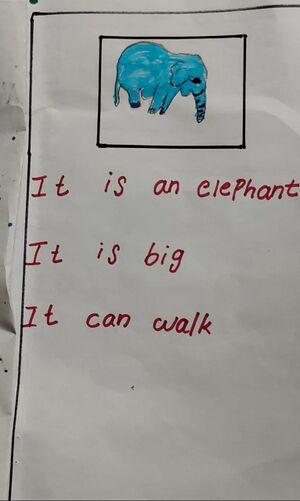 It is an elephant
It is big
It can walk